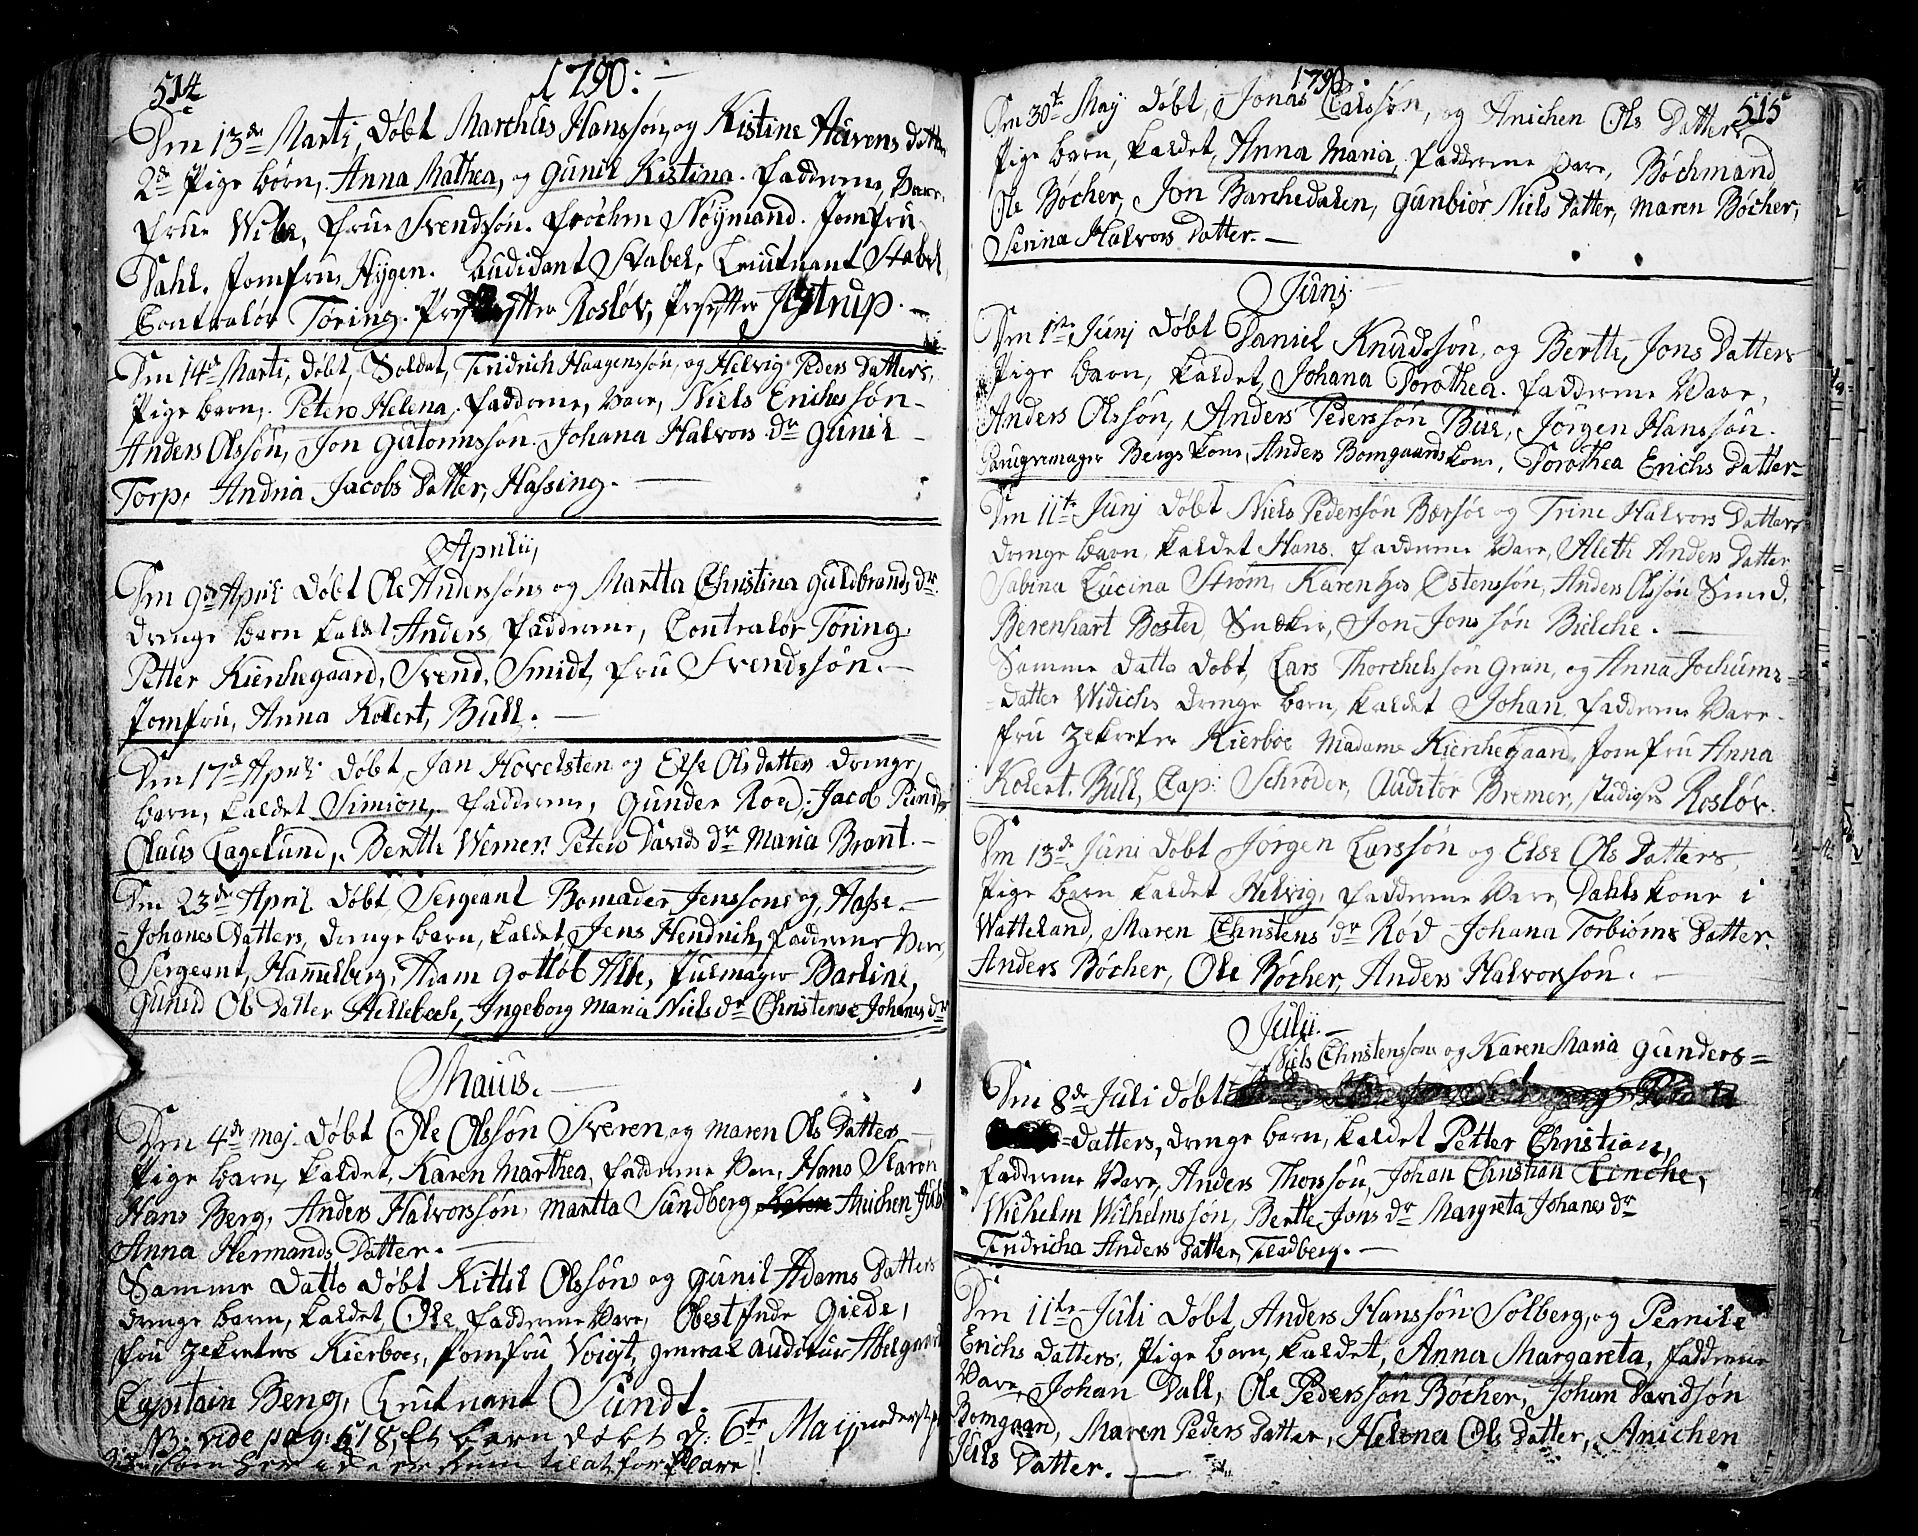 514
1790:
Dm 13de Marti, Døbt Marchus Hanssøn, og Kistine Aavens datter
2de Pige børn, Anna Mathea, og Gunil Kistina. fadderne, Vare,
frue Wibe, frue Svendsøn. frøchen Nøymand. Jomfru
Dahl. Jomfru Hygen. Audidant Stabel, Leiutnant Stabel,
Contralør Tøring. Rosløv, Jystrup.
Dm 14de Marti, Døbt, Soldat, Fridrich Haagenssøn, og Helvig Peders Datters,
Pige barn, Peters Helena, fadderne, Vare, Niels Erichssøn
Anders Olssøn, Jon Gulormssøn. Johana Halvors dr Gunil
Torp, Andria Jacobs Datter, Hassing.
Aprily,
Dm 9de April Døbt Ole Anderssøns og Martta Christina Guldbrands dr.
Drenge barn kaldet Anders, fadderne, Contralør Tøring,
Petter Kierchegaard, Svend, Smidt, fru Svendssøn.
Jomfru, Anna Kolert, Bull.
Dm 17de April Døbt, Jan Hovelsten og Else Olsdatters Drenge,
barn, kaldet Simion, fadderne, Gunder Roed, Jacob
Claus Lagelund, Berthe Werner, Peters Davids dr Maria Brant.
Dm 23de April Døbt, Sergeant Bomader Jenssons og, Hasse
Johanes Datters, Drenge barn, kaldet Jens Hendrich, fadderne Vare,
Sergeant, Hammelberg, Adam Gotløb Albe, Barline,
Gunild Ols Datter Hellebech, Ingeborg Maria Niels dr Christense Johanes dr
Maius.
Dm 4de Maj. Døbt Ole Olssøn Sveren og Maren Ols Datters
Pige barn, kaldet, Karen Marthea, fadderne Vare, Hans Skaron
Hans Berg, Anders Halvorssøn, Martta Sundberg Anichen Juls
Anna Hermands Datter.
Samme Datto Døbt Kittil Olssøns og Gunil Adams Datters
Drenge barn, kaldet, Ole fadderne Vare, Obest Inde Giede,
fru Zekreters Kierboe, Jomfru Voigt, General Auditeur Abelgaard
Capitain Beng, Leuitnant Sundt.
NB: vide pag: 518, et barn døbt d: 6te Maij
som her
1790
515
Dm 30te May Døbt, Jonas Larssøn, og Anichen Ols Datters
Pige barn, kaldet, Anna Maria, fadderne Vare, Bøchmand
Ole Bøcher, Jon Barchedalen, Gunbiør Niels Datter, Maren Bøcher,
Serina Halvors Datter.
Junj
Dm 1te Junj Døbt Daniel Knudssøn, og Berthe, Jons Datters
Pige barn, kaldet, Johana Dorothea. fadderne Vare,
Anders Olssøn, Anders Pederssøn Bue, Jørgen Hanssøn.
Parugvemager Bergs kone, Anders Bomgaards kone, Dorothea Erichs Datter
Dm 11te Junj Døbt Niels Pederssøn Børsøe og Trine Halvors Datters
Drenge barn kaldet Hans. fadderne Vare, Aleth Anders Datter
Sabina Lucina Strøm, Karen hos Østenssøn, Anders Olssøn Smed,
Berenhart Bosted, Snæker, Jon Jonssøn Bielche.
Samme Datto Døbt, Lars Thorchelssøn Gran, og Anna Jochums
Datter Widichs Drenge barn, kaldet Johan, fadderne Vare
fru Zekreter Kierboe Madame Kierchegaard, Jomfru Anna
Kolert. Bull, Cap: Schrøder, Auditør Bremer, Rosløv.
Dm 13de Juni Døbt Jørgen Larssøn og Else Ols Datters
Pige barn kaldet Helvig, fadderne Vare, Dahls kone i
Watteland, Maren Christens dr Rød Johana Torbiørns Datter.
Anders Bøcher, Ole Bøcher, Anders Halvorssøn.
Julij.
Niels Christenssøns og Karen Maria Gunders=
Dm 8de Juli Døbt
=Datters, Drenge barn, kaldet Petter Christian,
fadderne Vare, Anders Thorssøn, Johan Christian Lenche,
Wilhelm Wilhelmssøn, Berthe Jons dr Margreta Johanes dr
Fridricha Anders Datter, Fladberg.
Dm 11te Juli Døbt, Anders Hanssøn Solberg, og Pernile
Erichs Datters, Pige barn, kaldet, Anna Margareta, fadderne
Vare, Johan Dall, Ole Pederssøn Bøcher, Johan Davidsøn
Bomgaard, Maren Peders Datter, Helena Ols Datter, Anichen
Juls Datter.